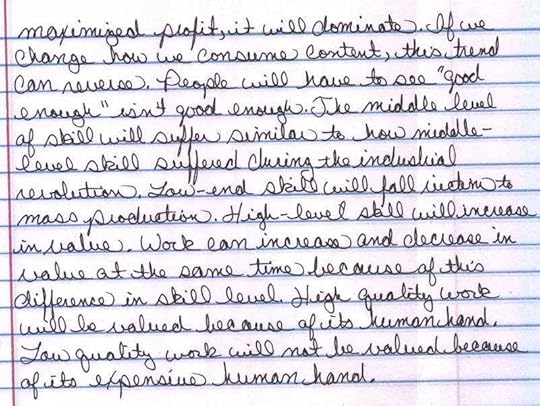 maximized profit, it will dominate. If we
change how we consume content, this trend
can reverse. People will have to see "good
enough" isn't good enough. The middle level
of skill will suffer similar to how middle-
level skill suffered during the industrial
revolution. Low-end skill will fall victim to
mass production. High-level skill will increase
in value. Work can increase and decrease in
value at the same time because of this
difference in skill level. High quality work
will be valued because of its human hand.
Low quality work will not be valued because
of its expensive human hand.